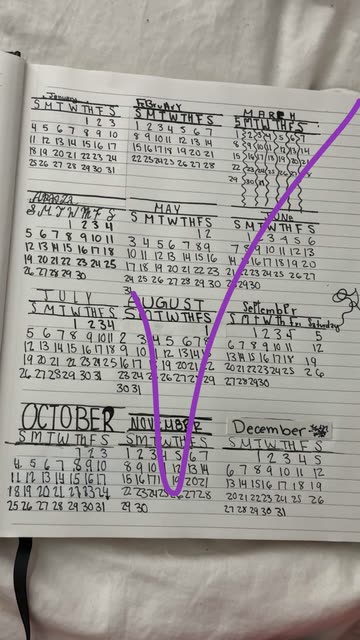 January
S M T W TH F S
1 2 3
4 5 6 7 8 9 10
11 12 13 14 15 16 17
18 19 20 21 22 23 24
25 26 27 28 29 30 31
FEBRUARY
S M T W TH F S
1 2 3 4 5 6 7
8 9 10 11 12 13 14
15 16 17 18 19 20 21
22 23 24 25 26 27 28
MARCH
S M T W TH F S
1 2 3 4 5 6 7
8 9 10 11 12 13 14
15 16 17 18 19 20 21
22 23 24 25 26
29 30 31
S M T W TH F S
1 2 3 4
5 6 7 8 9 10 11
12 13 14 15 16 17 18
19 20 21 22 23 24 25
26 27 28 29 30
MAY
S M T W TH F S
1 2
3 4 5 6 7 8 9
10 11 12 13 14 15 16
17 18 19 20 21 22 23
24 25 26 27 28 29 30
31
June
S M T W TH F S
1 2 3 4 5 6
7 8 9 10 11 12 13
14 15 16 17 18 19 20
22 23 24 25 26 27
28 29 30
JULY
S M T W TH F S
1 2 3 4
5 6 7 8 9 10 11
12 13 14 15 16 17 18
19 20 21 22 23 24 25
26 27 28 29 30 31
AUGUST
S M T W TH F S
1
2 3 4 5 6 7 8
9 10 11 12 13 14 15
16 17 18 19 20 21 22
23 24 25 26 27 28 29
30 31
September
S M T W Th Fri Saturday
1 2 3 4 5
6 7 8 9 10 11 12
13 14 15 16 17 18 19
20 21 22 23 24 25 26
27 28 29 30
OCTOBER
S M T W TH F S
1 2 3
4 5 6 7 8 9 10
11 12 13 14 15 16 17
18 19 20 21 22 23 24
25 26 27 28 29 30 31
NOVEMBER
S M T W TH F S
1 2 3 4 5 6 7
8 9 10 12 13 14
15 16 17 19 20 21
22 23 24 25 26 27 28
29 30
December
S M T W TH F S
1 2 3 4 5
6 7 8 9 10 11 12
13 14 15 16 17 18 19
20 21 22 23 24 25 26
27 28 29 30 31